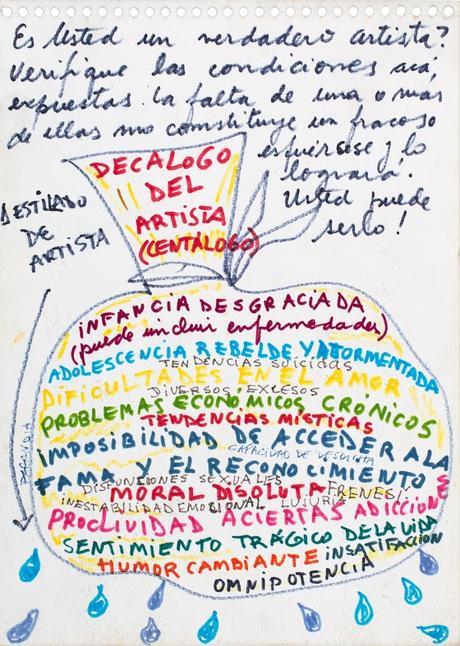 Es Usted un verdadero artista?
Verifique las condiciones acá,
expuestas. La falta de una o mas
de ellas no constituye un fracaso
esfuércese y lo
logrará.
Usted puede
serlo!
DECALOGO
DEL
ARTISTA
(CENTÁLOGO)
DESTILADO
DE
ARTISTA
INFANCIA DESGRACIADA
(puede incluir enfermedades)
ADOLESCENCIA REBELDE Y ATORMENTADA
TENDENCIAS SUICIDAS
DIFICULTADES EN EL AMOR
DIVERSOS EXCESOS
PROBLEMAS ECONOMICOS CRÓNICOS
TENDENCIAS MÍSTICAS
IMPOSIBILIDAD DE ACCEDER A LA
CAPACIDAD DE
FAMA Y EL RECONOCIMIENTO
DISFUNCIONES SEXUALES
MORAL DISOLUTA FRENESÍ
INESTABILIDAD EMOCIONAL LUJURIA
PROCLIVIDAD A CIERTAS ADICCIONES
SENTIMIENTO TRÁGICO DE LA VIDA
HUMOR CAMBIANTE INSATIFACCION
OMNIPOTENCIA